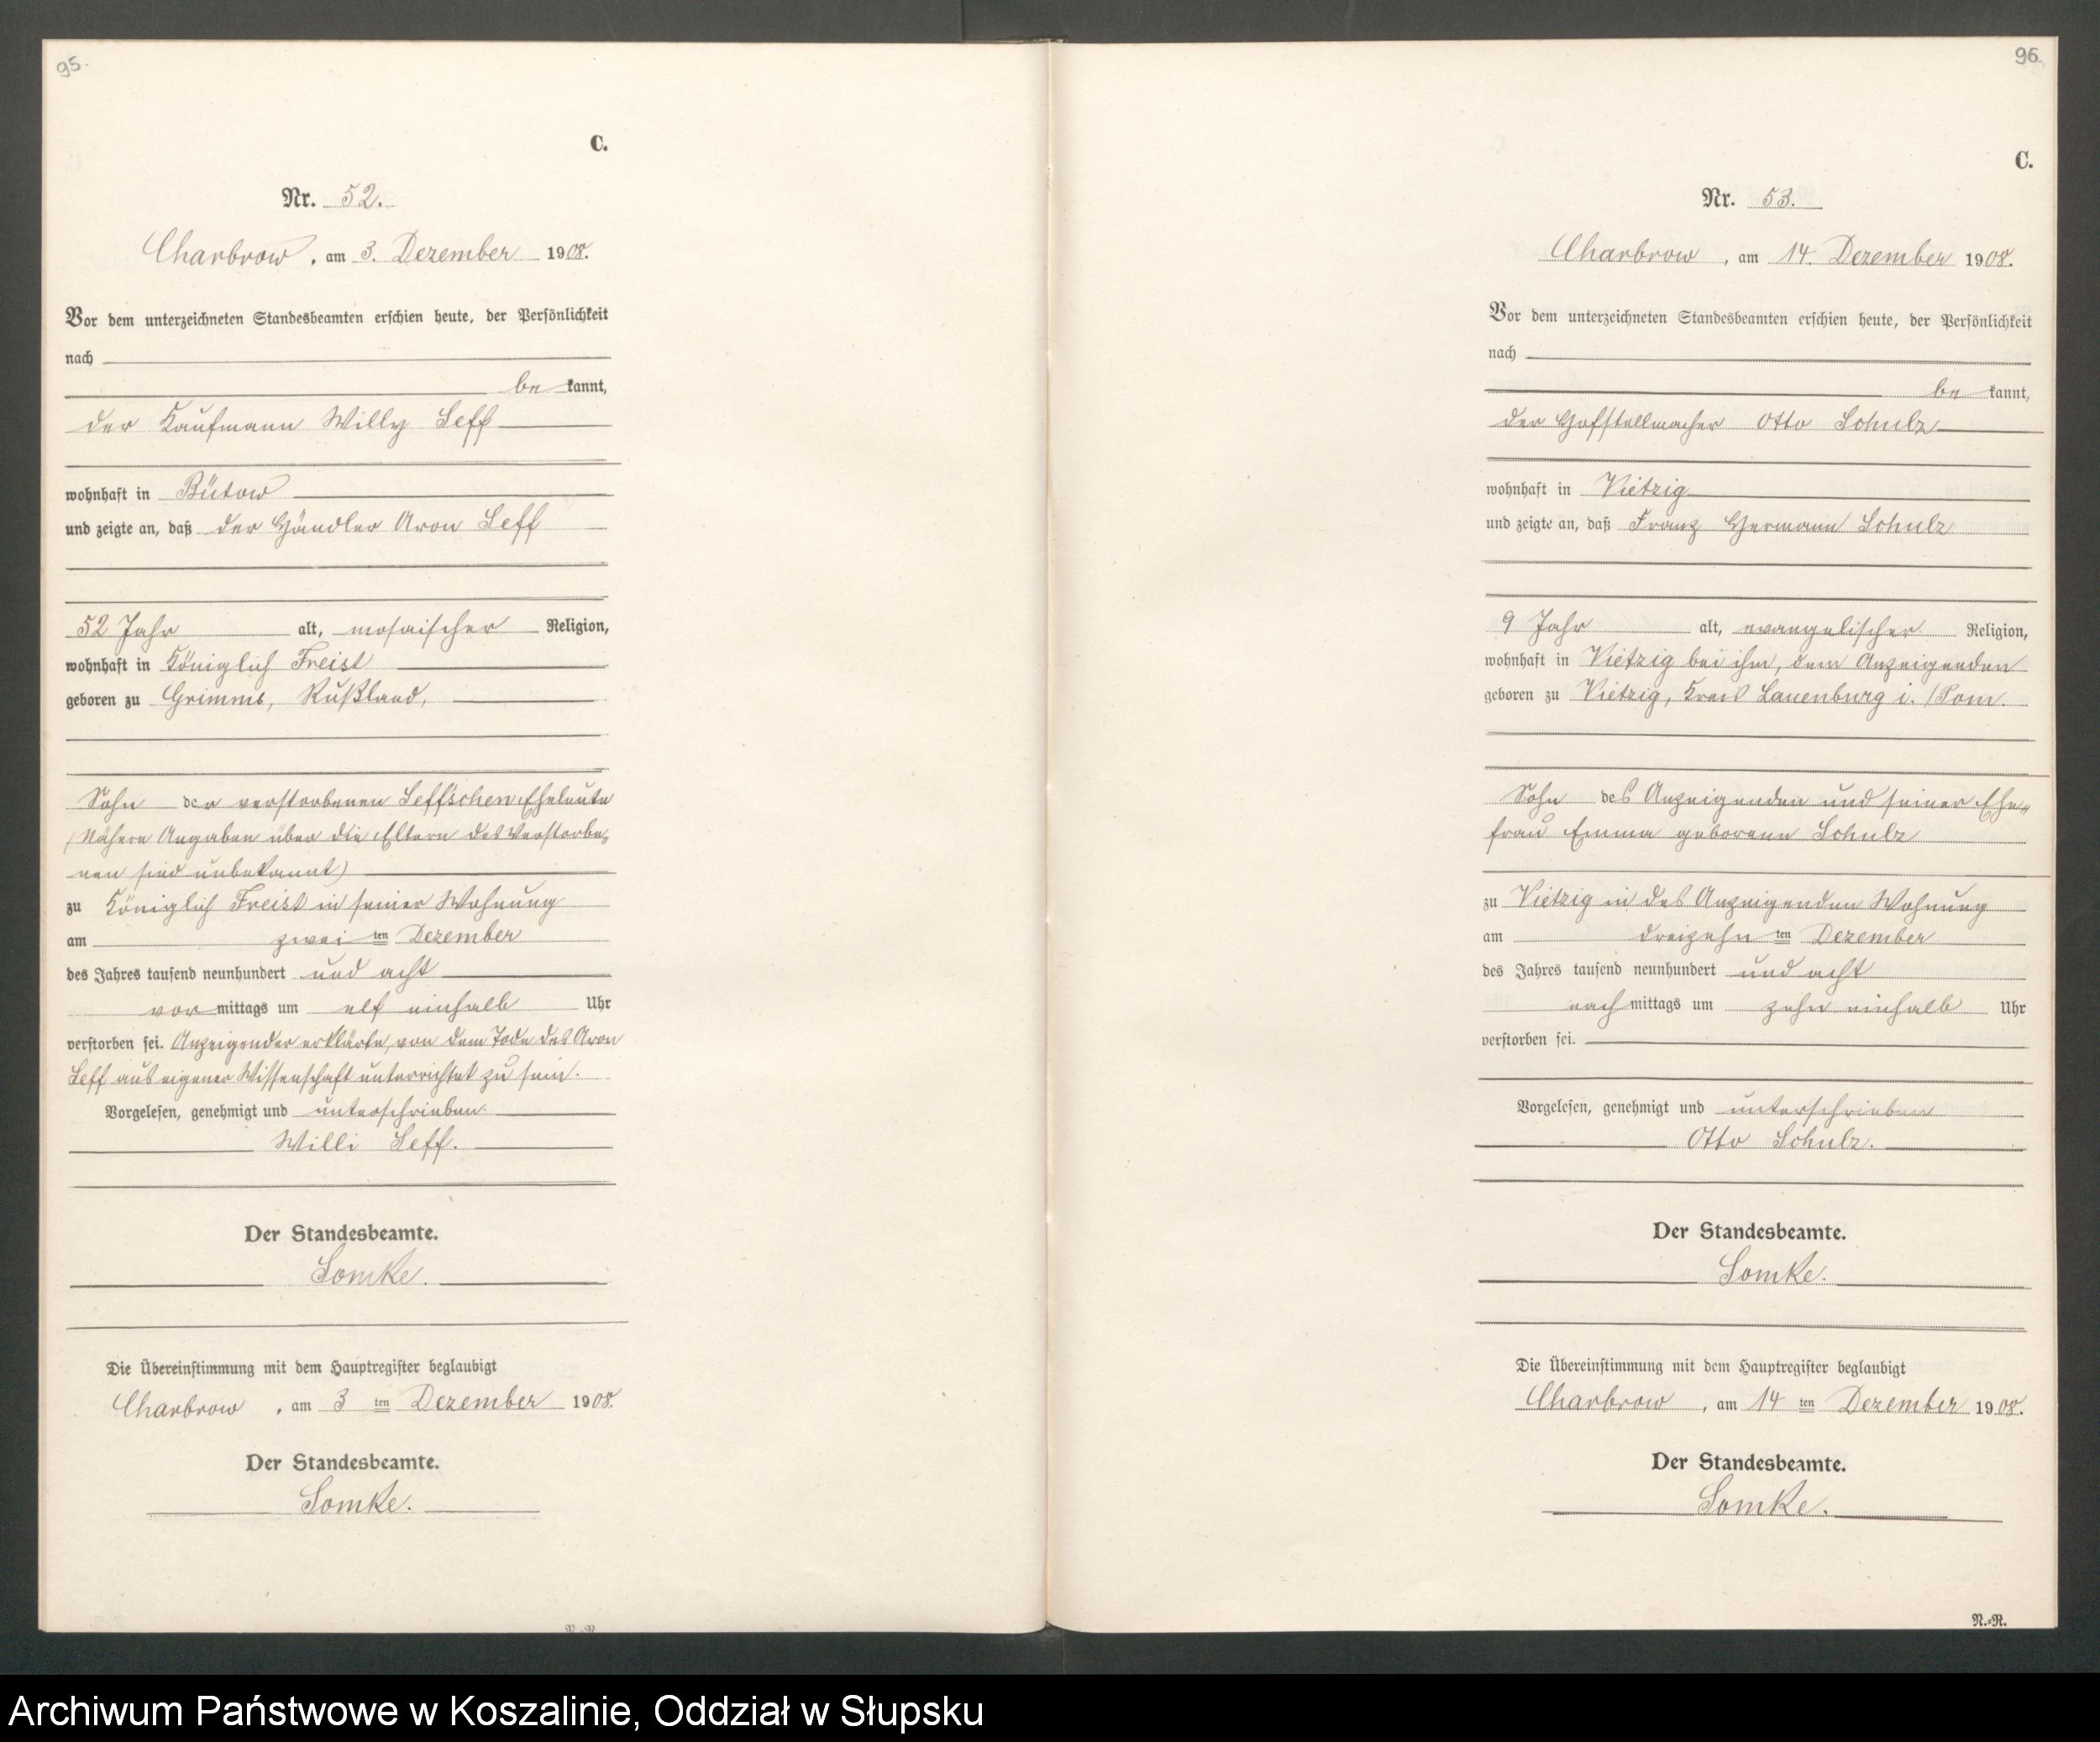 95.
C.
Nr. 52.
Charbrow, am 3. Dezember 1908.
Vor dem unterzeichneten Standesbeamten erschien heute, der Persönlichkeit
nach
be kannt,
der Kaufmann Willy Leff
wohnhaft in Bütow
und zeigte an, daß der Händler Aron Leff
52 Jahr alt, mosaischer Religion,
wohnhaft in Königlich Freist
geboren zu Grimms, Rußland,
Sohn der verstorbenen Leff'schen Eheleute
(Nähere Angaben über die Eltern des Verstorbe„
nen sind unbekannt)
zu Königlich Freist in seiner Wohnung
am zwei ten Dezember
des Jahres tausend neunhundert und acht
vor mittags um elf einhalb Uhr
verstorben sei. Anzeigender erklärte, von dem Tode des Aron
Leff aus eigener Wissenschaft unterrichtet zu sein.
Vorgelesen, genehmigt und unterschrieben.
Willi Leff.
Der Standesbeamte.
Lomke.
Die Übereinstimmung mit dem Hauptregister beglaubigt
Charbrow, am 3 ten Dezember 1908.
Der Standesbeamte.
Lomke.
96.
C.
Nr. 53.
Charbrow, am 14. Dezember 1908.
Vor dem unterzeichneten Standesbeamten erschien heute, der Persönlichkeit
nach
be kannt,
der Hofstellmacher Otto Schulz
wohnhaft in Vietzig
und zeigte an, daß Franz Hermann Schulz
9 Jahr alt, evangelischer Religion,
wohnhaft in Vietzig bei ihm, dem Anzeigenden
geboren zu Vietzig, Kreis Lauenburg i. /Pom.
Sohn des Anzeigenden und seiner Ehe„
frau Emma geborene Schulz
zu Vietzig in des Anzeigenden Wohnung
am dreizehn ten Dezember
des Jahres tausend neunhundert und acht
nach mittags um zehn einhalb Uhr
verstorben sei.
Vorgelesen, genehmigt und unterschrieben
Otto Schulz.
Der Standesbeamte.
Lomke.
Die Übereinstimmung mit dem Hauptregister beglaubigt
Charbrow, am 14 ten Dezember 1908.
Der Standesbeamte.
Lomke.
N.=R.
Archiwum Państwowe w Koszalinie, Oddział w Słupsku